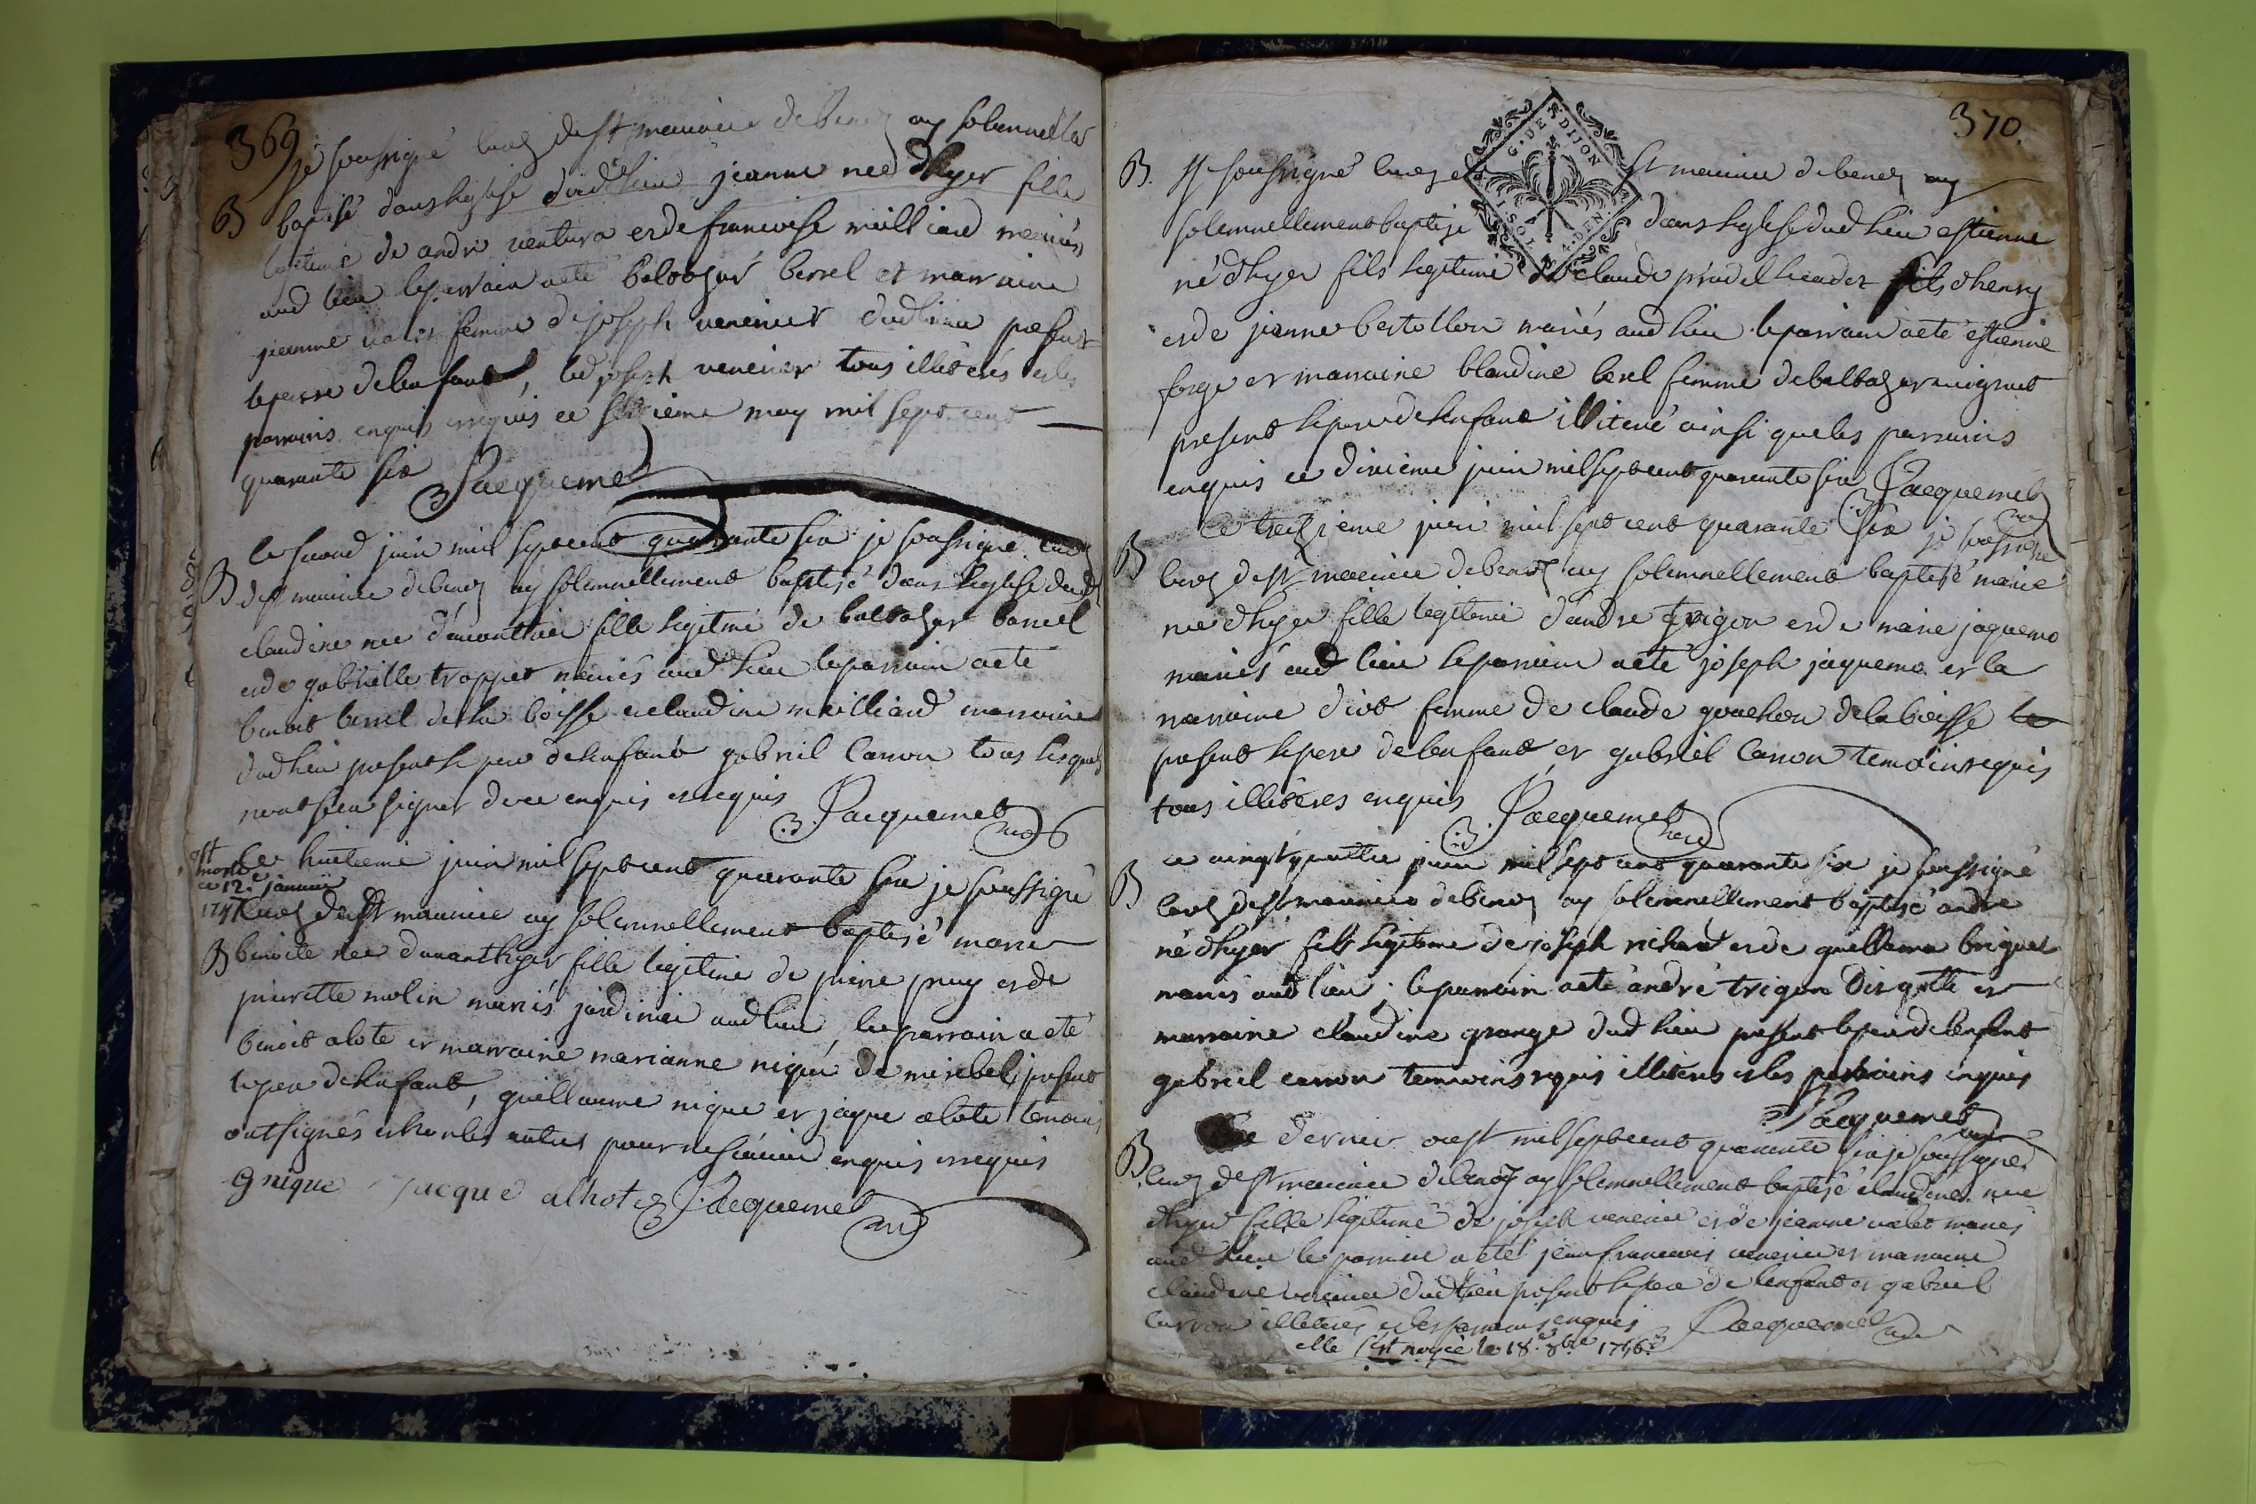 369
je soussigné curé de st maurice de benoz ay solemnelle
B baptisé dans leglise dud lieu jeanne née d'hyer fille
legitime de andre ventura et de francoise meilliard mariés
aud lieu le parrain a eté baltazar berrel et marraine
jeanne valet femme de joseph venerier dud lieu present
le pere de lenfant, led joseph venerier tous illiterés et les
parrains enquis requis ce sixieme may mil sept cent
quarante six Jacquemet
le second juin mil sept cent quarante six je soussigné curé
B de st maurice de benoz ay solemnellement baptisé dans leglise dud
claudine née davanthier fille legitime de baltazar barrel
et de gabrielle troppet mariés aud lieu le parrain a eté
benoit berrel de la boisse et claudine meilliard marraine
dud lieu present le pere de lenfant gabriel carron tous lesquels
nont sceu signer de ce enquis et requis Jacquemet curé
est morte ce 12e janvier 1747
le huitieme juin mil sept cent quarante six je soussigné
curé de st maurice ay solemnellement baptisé marie
B benoite née davanthyer fille legitime de pierre puy et de
pierrette molin mariés jardinier aud lieu, le parrain a eté
benoit alote et marraine marianne nique de miribel, present
le pere de lenfant, guillaume nique et jaque alote temoins
ont signés et non les autres pour ne scavoir enquis et requis
G nique Jacque alhote Jacquemet curé
370.
G. DE DIJON
A 1 SOL 4. DEN.
B. Je soussigné curé de st maurice de benoz ay
solemnellement baptisé dans leglise dud lieu estienne
né d'hyer fils legitime de claude prudel cadet fils d'henry
et de jeanne bertollon mariés aud lieu le parrain a eté estienne
forge et marraine blandine berel femme de baltazar mignot
present le pere de lenfant illiteré ainsi que les parrains
enquis ce dixieme juin mil sept cent quarante six Jacquemet curé
Ce treizieme juin mil sept cent quarante six je soussigné
B curé de st maurice de benoz ay solemnellement baptisé marie
née d'hyer fille legitime d'andre trigon et de marie jaquemo
mariés aud lieu le parrain a eté joseph jaquemo et la
marraine diot femme de claude gouchon de la boisse
present le pere de lenfant et gabriel carron temoin requis
tous illiteres enquis Jacquemet curé
ce vingt quatre juin mil sept cent quarante six je soussigné
B curé de st maurice de benoz ay solemnellement baptisé andre
né d'hyer fils legitime de joseph richard et de guillerma briguet
mariés aud lieu; le parrain a eté andré trigon et
marraine claudine grange dud lieu present le pere de lenfant
gabriel carron temoins requis illiteres et les parrains enquis
Jacquemet curé
Ce dernier aoust mil sept cent quarante six je soussigné
B. curé de st maurice de benoz ay solemnellement baptisé claudine née
d'hyer fille legitime de joseph venerier et de jeanne valet mariés
aud lieu le parrain a eté jean francois venerier et marraine
claudine venerier dud lieu present le pere de lenfant et gabriel
carron illiterés et les parrains enquis Jacquemet curé
elle s'est noyée le 18e 8bre 1746